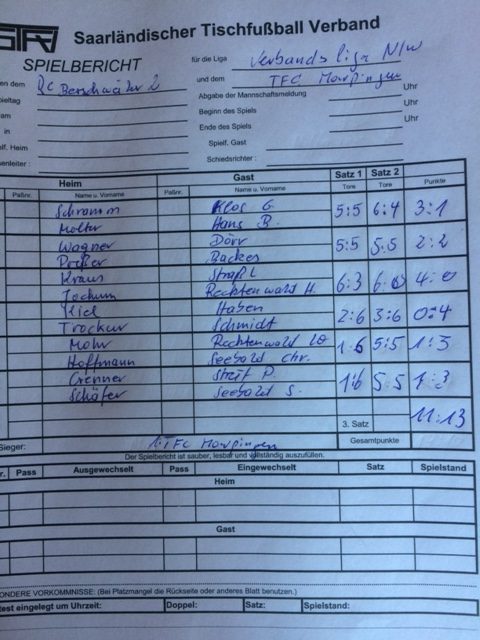 STFV Saarländischer Tischfußball Verband
SPIELBERICHT für die Liga Verbandsliga N/W
en dem RC Berschweiler 2 und dem TFC Marpingen
pieltag Abgabe der Mannschaftsmeldung Uhr
am Beginn des Spiels Uhr
in Ende des Spiels Uhr
elf. Heim Spielf. Gast
enleiter : Schiedsrichter :
Heim Gast Satz 1 Satz 2
Paßnr. Name u. Vorname Paßnr. Name u. Vorname Tore Tore Punkte
Schramm Klos G. 5:5 6:4 3:1
Molter Hans B.
Wagner Dörr 5:5 5:5 2:2
Backes
Kraus 6:3 4:0
Jochum Rechtenwald H.
Kiel Haben 2:6 3:6 0:4
Trockur Schmidt
Mohr Rechtenwald 1:6 5:5 1:3
Hoffmann Seebald Chr.
Grenner Streit P. 1:6 5:5 1:3
Schäfer Seebald S.
3. Satz 11:13
Sieger: 1. TFC Marpingen Gesamtpunkte
Der Spielbericht ist sauber, lesbar und vollständig auszufüllen.
r. Pass Ausgewechselt Pass Eingewechselt Satz Spielstand
Heim
Gast
ONDERE VORKOMMNISSE: (Bei Platzmangel die Rückseite oder anderes Blatt benutzen.)
test eingelegt um Uhrzeit: Doppel: Satz: Spielstand: